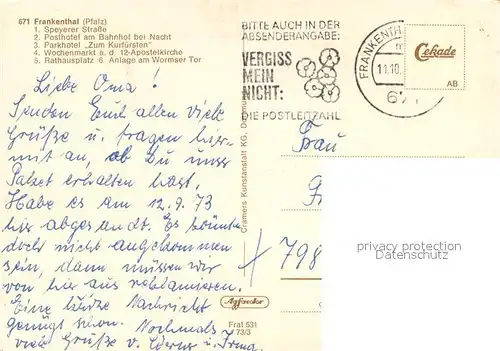 671 Frankenthal (Pfalz)
1. Speyerer Straße
2. Posthotel am Bahnhof bei Nacht
3. Parkhotel „Zum Kurfürsten"
4. Wochenmarkt a. d. 12-Apostelkirche
5. Rathausplatz 6 Anlage am Wormser Tor
BITTE AUCH IN DER
ABSENDERANGABE:
VERGISS
MEIN
NICHT:
DIE POSTLEITZAHL
FRANKENTH
11.10.
Cekade
AB
Liebe Oma!
Senden Euch allen viele
Grüße u. fragen hier-
mit an, ob Du unser
Paket erhalten hast.
Habe es am 12.9.73
hier abgesandt. Es könnte
doch nicht angekommen
sein, dann müssen wir
von hier aus reklamieren.
Eine kurze Nachricht
genügt schon. Nochmals
viele Grüße v. u. Irma
Cramers Kunstanstalt KG, Dortmund
Frau
798
Agfacolor
Frat 531
73/3
privacy protection
Datenschutz